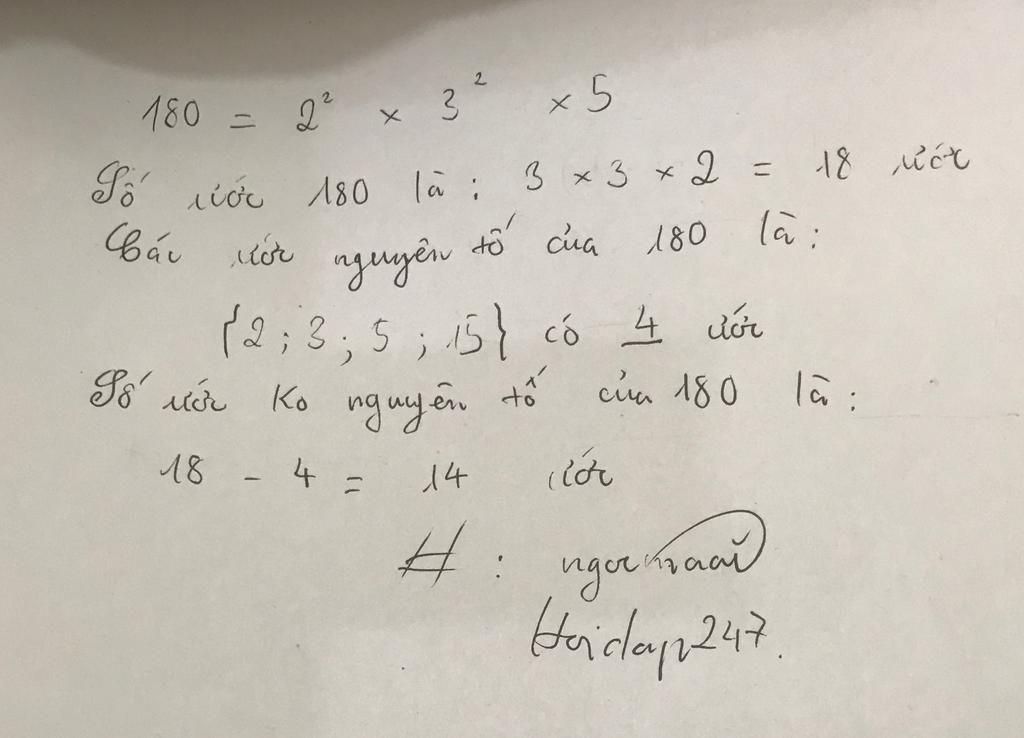 180 = 2² × 3² × 5
Số ước 180 là : 3 × 3 × 2 = 18 ước
Các ước nguyên tố của 180 là :
{2 ; 3 ; 5 ; 15} có 4 ước
Số ước ko nguyên tố của 180 là :
18 - 4 = 14 ước
# :
Hoidap247.